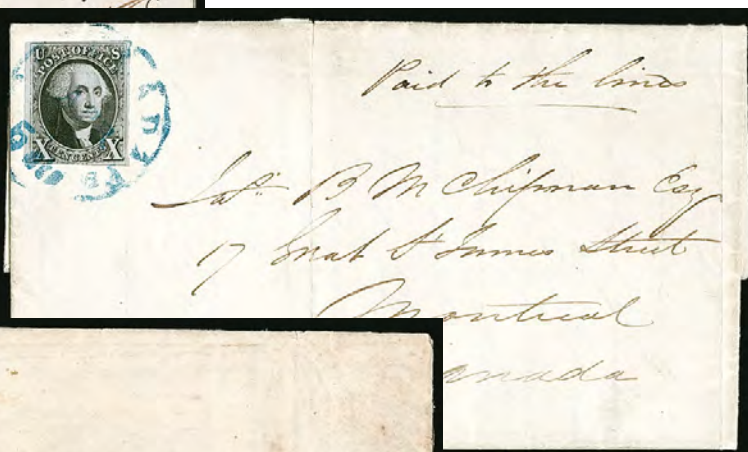 U S
POST OFFICE
X TEN CENTS X
Paid to the lines
B M Chipman Esq
17 Great St James Street
Montreal
anada